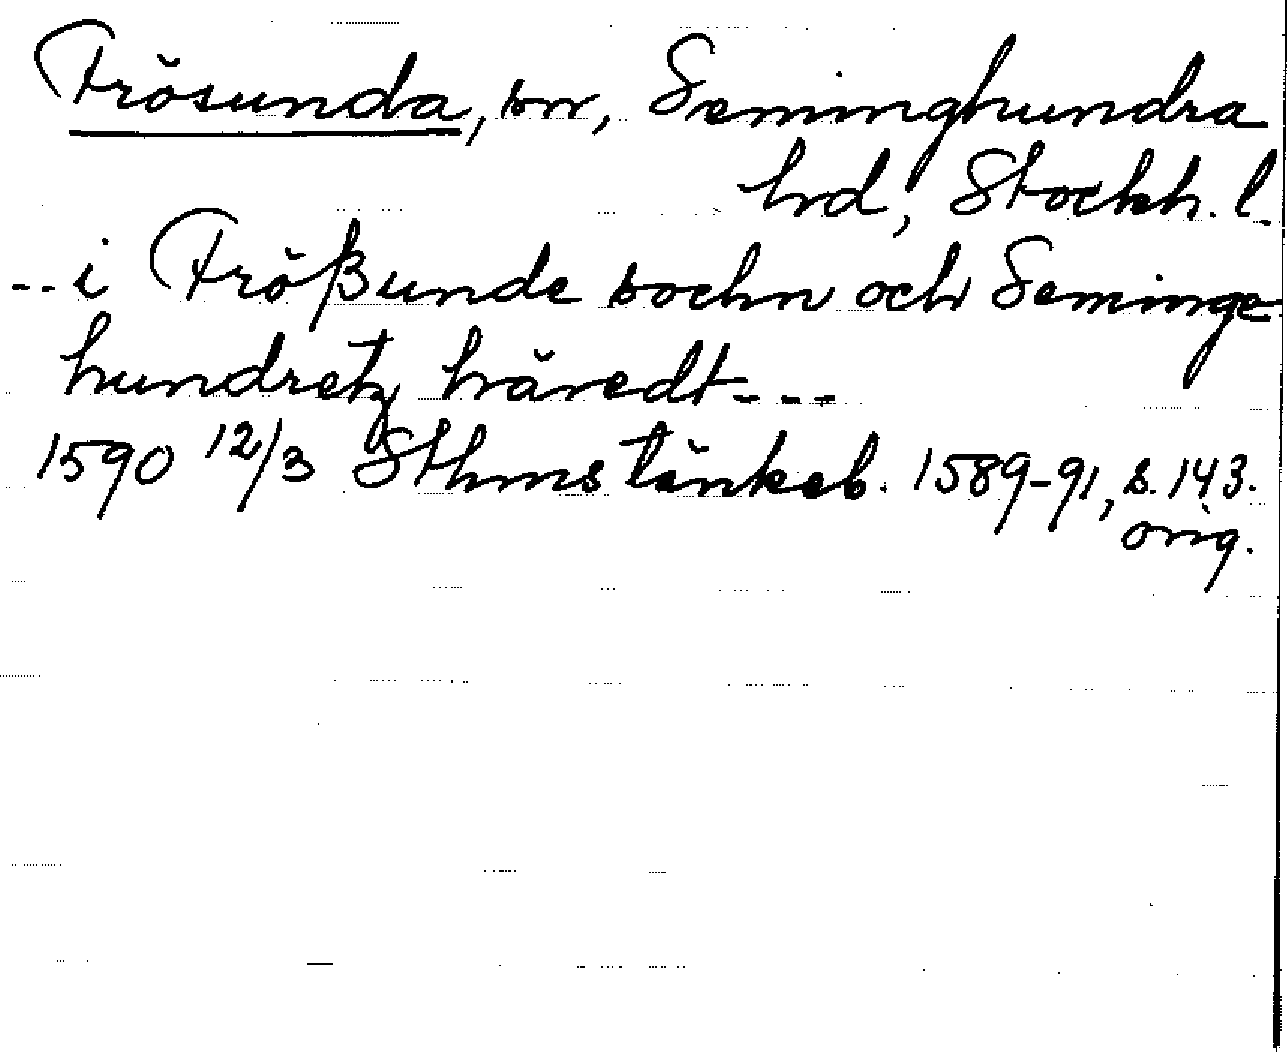 Frösunda, sn, Seminghundra
hd, Stockh. l.
--i Frößunde sochn och Seminge
hundretz häredt---
1590 12/3 Sthms tänkeb. 1589-91, s. 143.
orig.